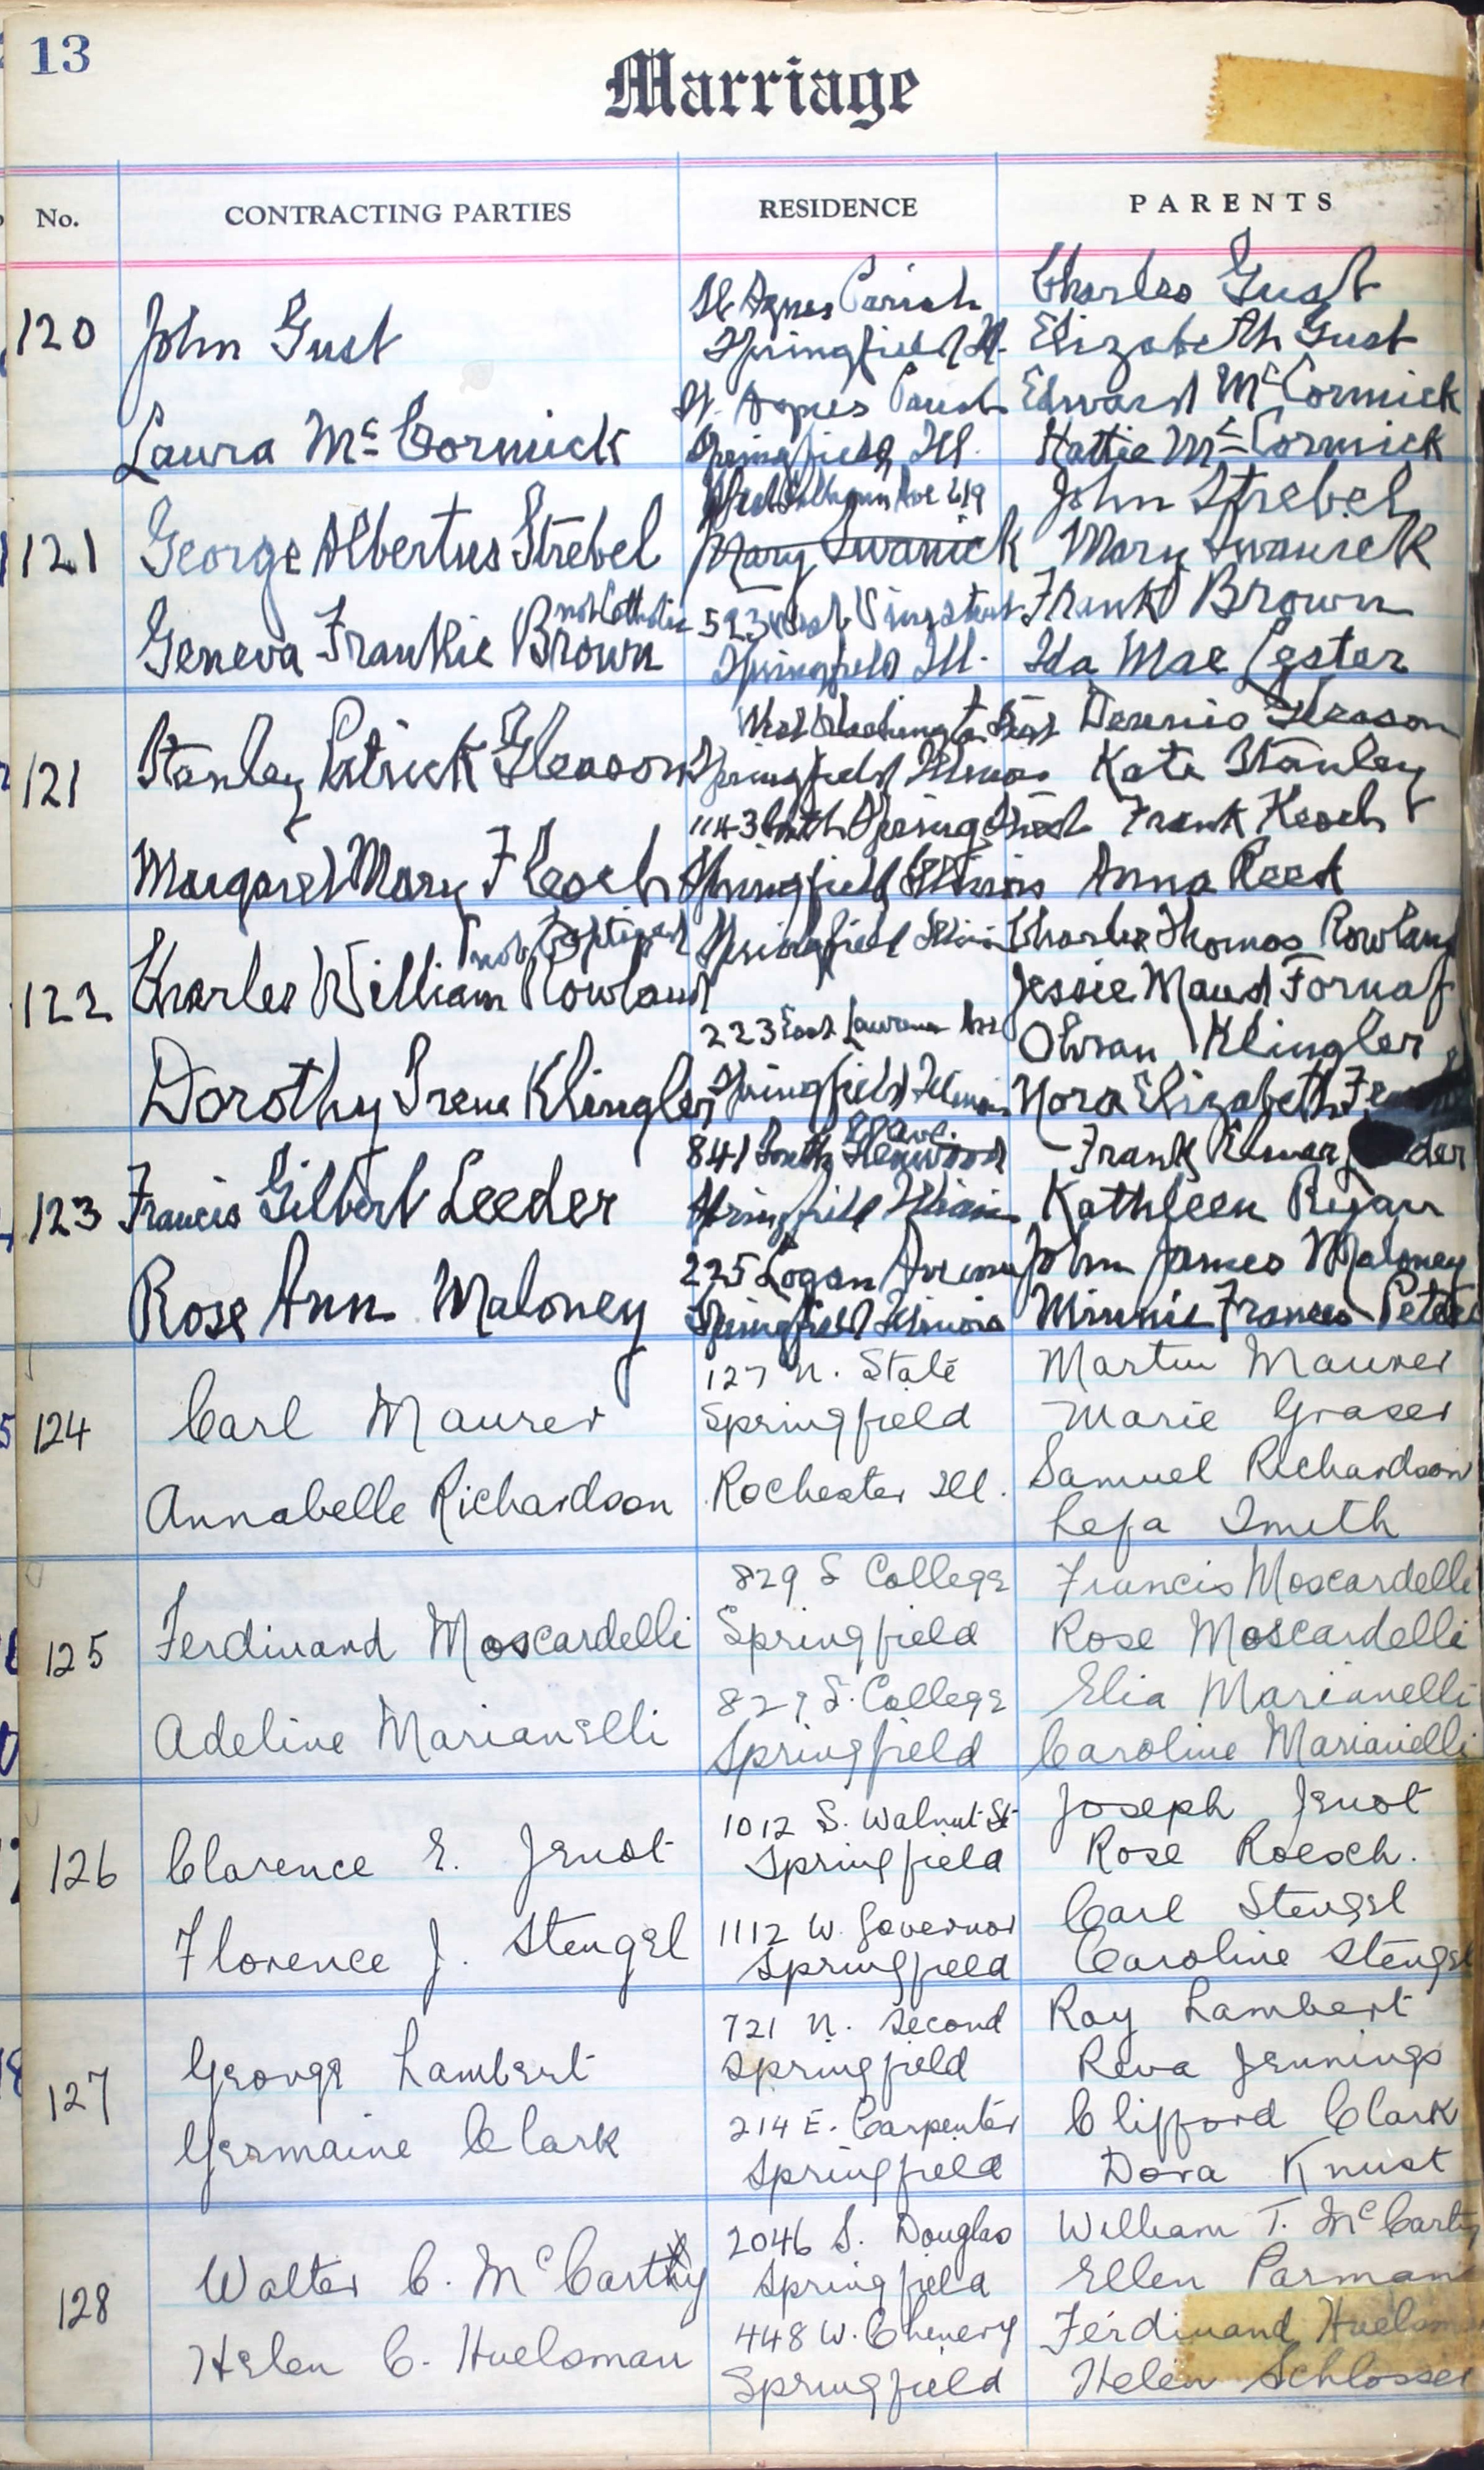 13
Marriage
No. CONTRACTING PARTIES RESIDENCE PARENTS
120
John Gust
St Agnes Parish
Springfield Ill.
Charles Gust
Elizabeth Gust
Laura Mc Cormick
St. Agnes Parish
Springfield Ill.
Edward Mc Cormick
Hattie Mc Cormick
121
George Albertus Strebel
619
Mary Swanick
John Strebel
Mary
not Catholic
Geneva Frankie Brown
523 West
Springfield Ill.
Frank Brown
Ida Mae Lester
121
Stanley Patrick Gleason
West Washington
Springfield Illinois
Dennis Gleason
Kate Stanley
Margaret Mary
1143 North
Springfield Illinois
Frank
Anna
122
not baptized
Charles William Rowland
Springfield Illinois
Charles Thomas Rowland
Jessie Maud
Dorothy Irene Klingler
223 East Lawrence Ave
Springfield Illinois
Klingler
Nora Elizabeth
123
Francis Gilbert Leeder
841 South Glenwood Ave.
Springfield Illinois
Frank Elmer
Kathleen Ryan
Rose Ann Maloney
225 Logan Avenue
Springfield Illinois
John James Maloney
Minnie Frances
124
Carl Maurer
127 N. State
Springfield
Martin Maurer
Marie Graser
Annabelle Richardson
Rochester Ill.
Samuel Richardson
Lefa Smith
125
Ferdinand Moscardelli
829 S College
Springfield
Francis Moscardelli
Rose Moscardelli
Adeline Marianelli
829 S. College
Springfield
Elia Marianelli
Caroline Marianelli
126
Clarence E. Jenot
1012 S. Walnut St
Springfield
Joseph Jenot
Rose Roesch.
Florence J. Stengel
1112 W. Governor
Springfield
Carl Stengel
Caroline Stengel
127
George Lambert
721 N. Second
Springfield
Ray Lambert
Reva Jennings
Germaine Clark
214 E. Carpenter
Springfield
Clifford Clark
Dora Knust
128
Walter C. McCarthy
2046 S. Douglas
Springfield
William T. McCarty
Ellen Parman
Helen C. Huelsman
448 W. Chenery
Springfield
Ferdinand
Helen Schlosser